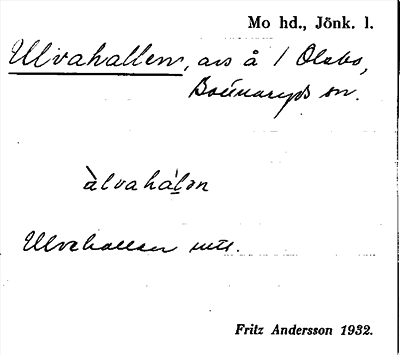 Mo hd., Jönk. l.
Ulvahallen, avs å 1 Olsbo,
Bottnaryds sn.
àlvahálən
Ulvahallen mtl.
Fritz Andersson 1932.